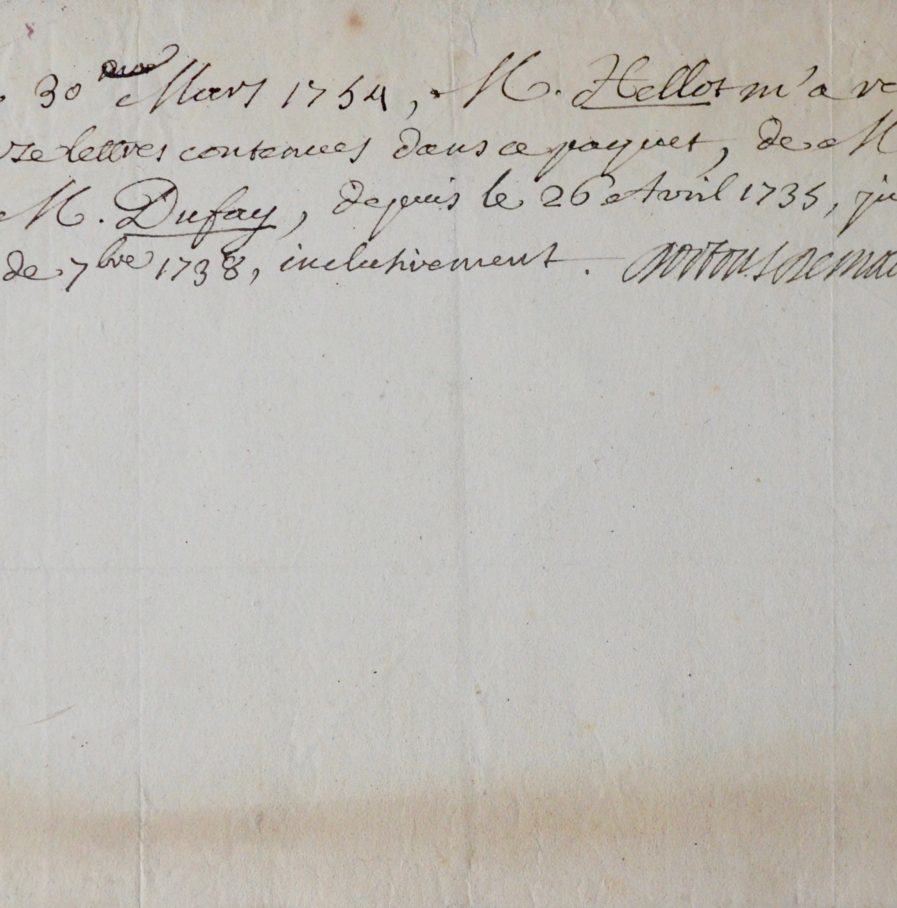 30 Mars 1754, M. Hellot m'a re
ze lettres contenues dans ce paquet, de M
M. Dufay, depuis le 26 Avril 1735, ju
de 7bre 1738, inclusivement. Dortous De mai